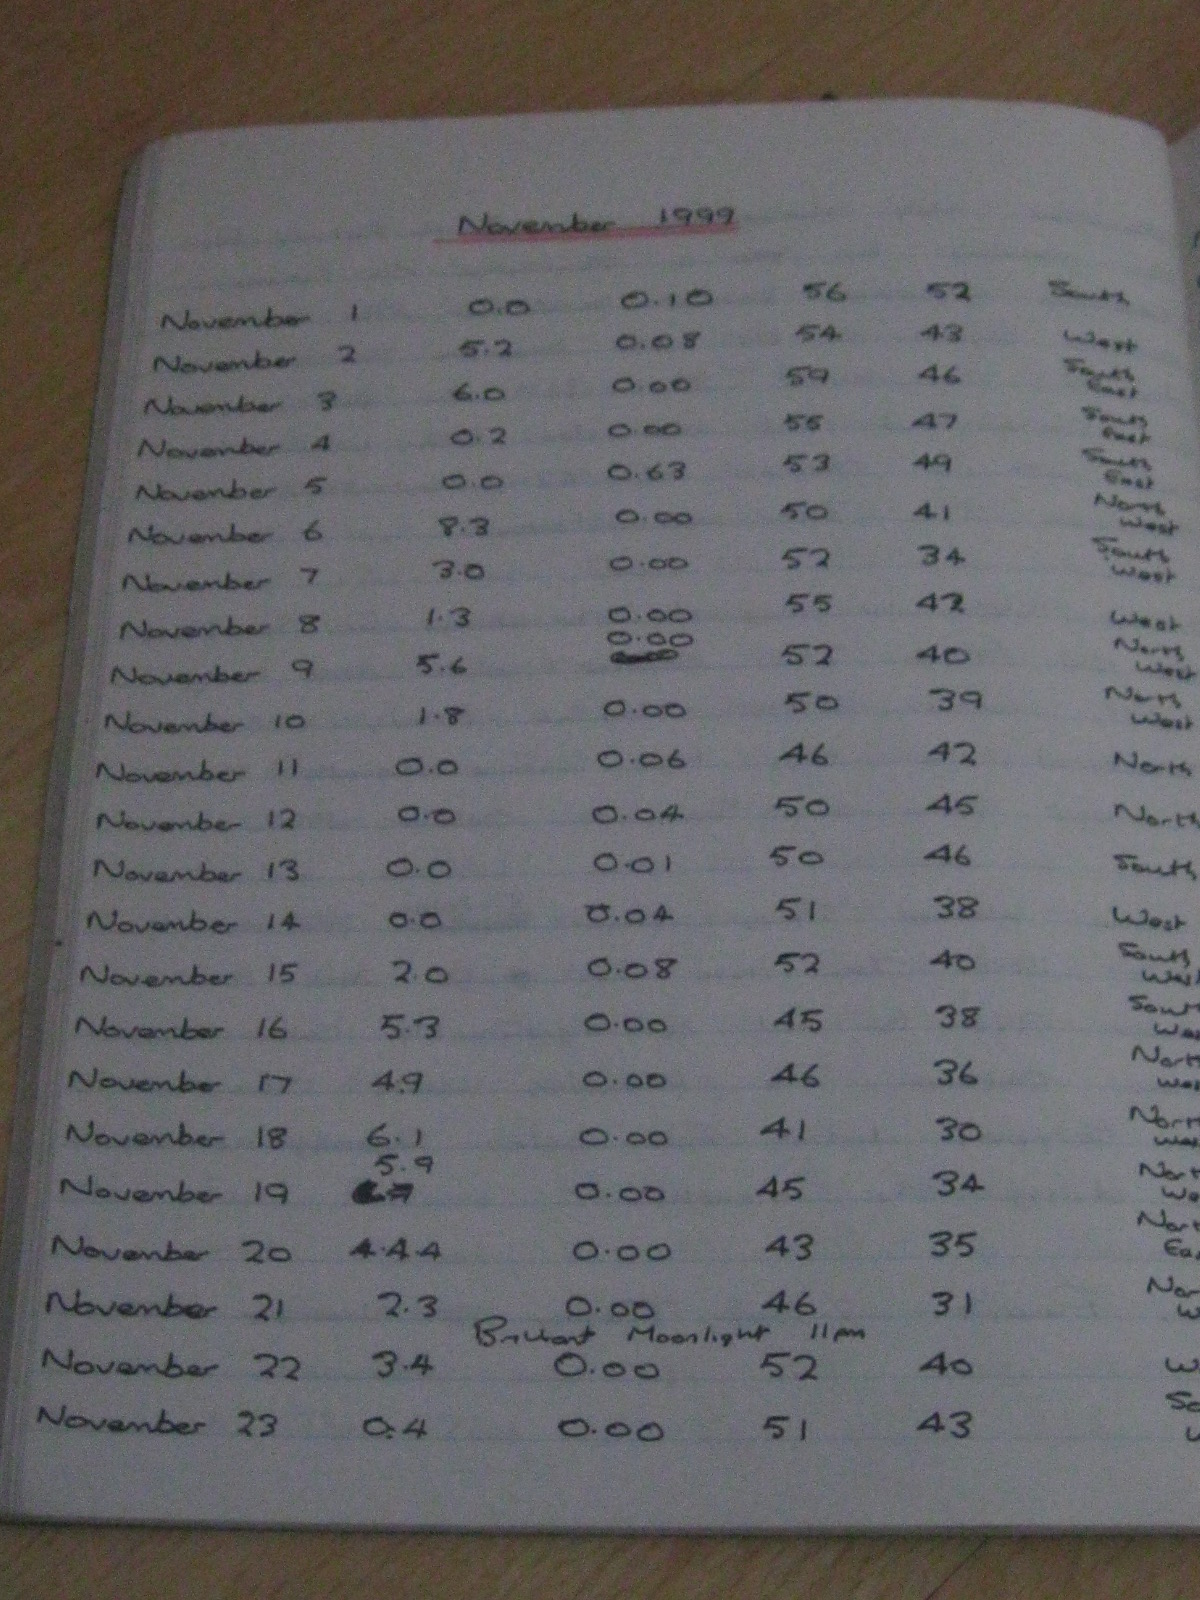 November 1999
November 1 0.0 0.10 56 52 South
November 2 5.2 0.08 54 43 West
November 3 6.0 0.00 59 46 South East
November 4 0.2 0.00 55 47 South East
November 5 0.0 0.63 53 49 South East
November 6 8.3 0.00 50 41 North West
November 7 3.0 0.00 52 34 South West
November 8 1.3 0.00 55 42 West
November 9 5.6 0.00 52 40 North West
November 10 1.8 0.00 50 39 North West
November 11 0.0 0.06 46 42 North
November 12 0.0 0.04 50 45 North
November 13 0.0 0.01 50 46 South
November 14 0.0 0.04 51 38 West
November 15 2.0 0.08 52 40 South West
November 16 5.3 0.00 45 38 South Wes
November 17 4.9 0.00 46 36 North Wes
November 18 6.1 0.00 41 30 North Wes
November 19 5.9 0.00 45 34 Nort We
November 20 4.4 0.00 43 35 Nort Eas
November 21 2.3 0.00 46 31 Nor W
Brilliant Moonlight 11pm
November 22 3.4 0.00 52 40 W
November 23 0.4 0.00 51 43 So W